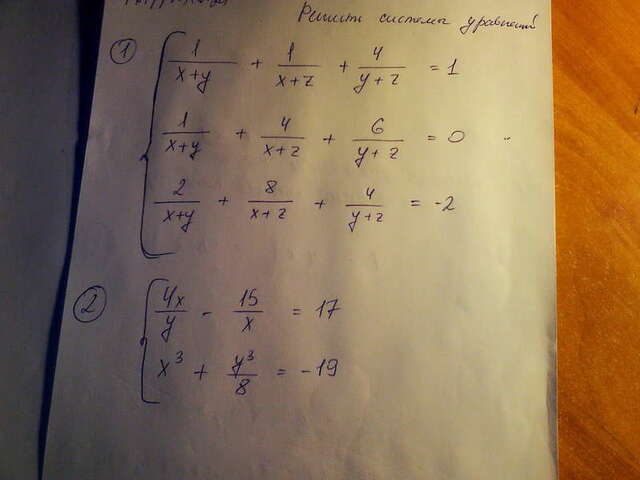 Решить системы уравнений
① 1/(x+y) + 1/(x+z) + 4/(y+z) = 1
1/(x+y) + 4/(x+z) + 6/(y+z) = 0
2/(x+y) + 8/(x+z) + 4/(y+z) = -2
② 4x/y - 15/x = 17
x³ + y³/8 = -19